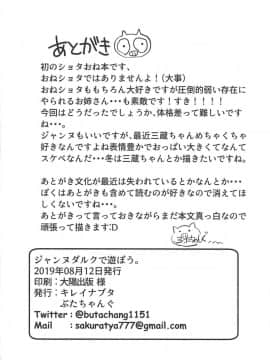 あとがき
初のショタおね本です、
おねショタではありませんよ！(大事)
おねショタももちろん大好きですが圧倒的弱い存在に
やられるお姉さん・・・も素敵です！すき！！！！
今回はどうだったでしょうか、体格差って難しいです
ね・・・。
ジャンヌもいいですが、最近三蔵ちゃんめちゃくちゃ
好きなんですよね表情豊かでおっぱい大きくてなんて
スケベなんだ・・・冬は三蔵ちゃんとか描きたいですね。
あとがき文化が最近は失われているとかなんとか・・・
ぼくはあとがきも含めて読むのが好きなので消えてほ
しくないですね・・・。
あとがきって言っておきながらまだ本文真っ白なので
頑張って描きます:D
ジャンヌダルクで遊ぼう。
2019年08月12日発行
印刷：大陽出版 様
発行：キレイナブタ
ぶたちゃんぐ
Twitter：@butachang1151
Mail　：sakuratya777@gmail.com